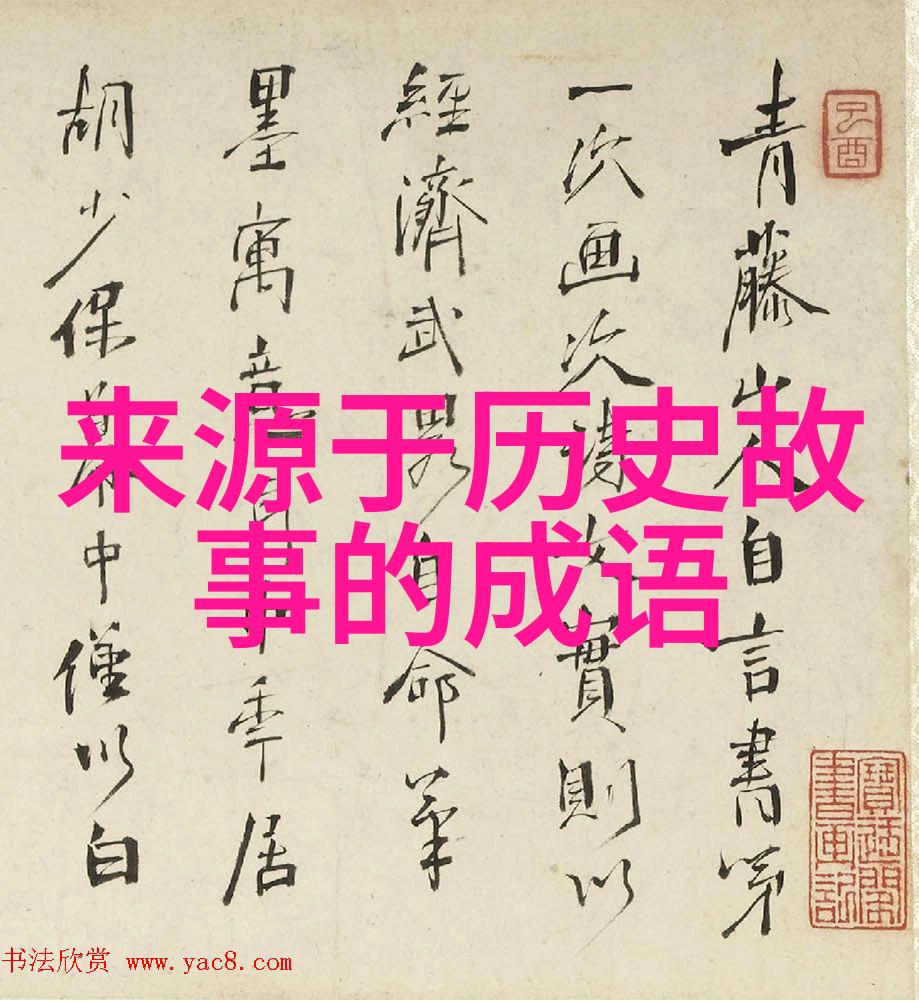 己酉
青藤山人自言書第
一次画次詩文實則以
經濟武畧自命筆
墨寓意季居
胡少保幕中僅以白
来源于历史故
事的成语
寶迂閣
書画記
书法欣赏 www.yac8.com